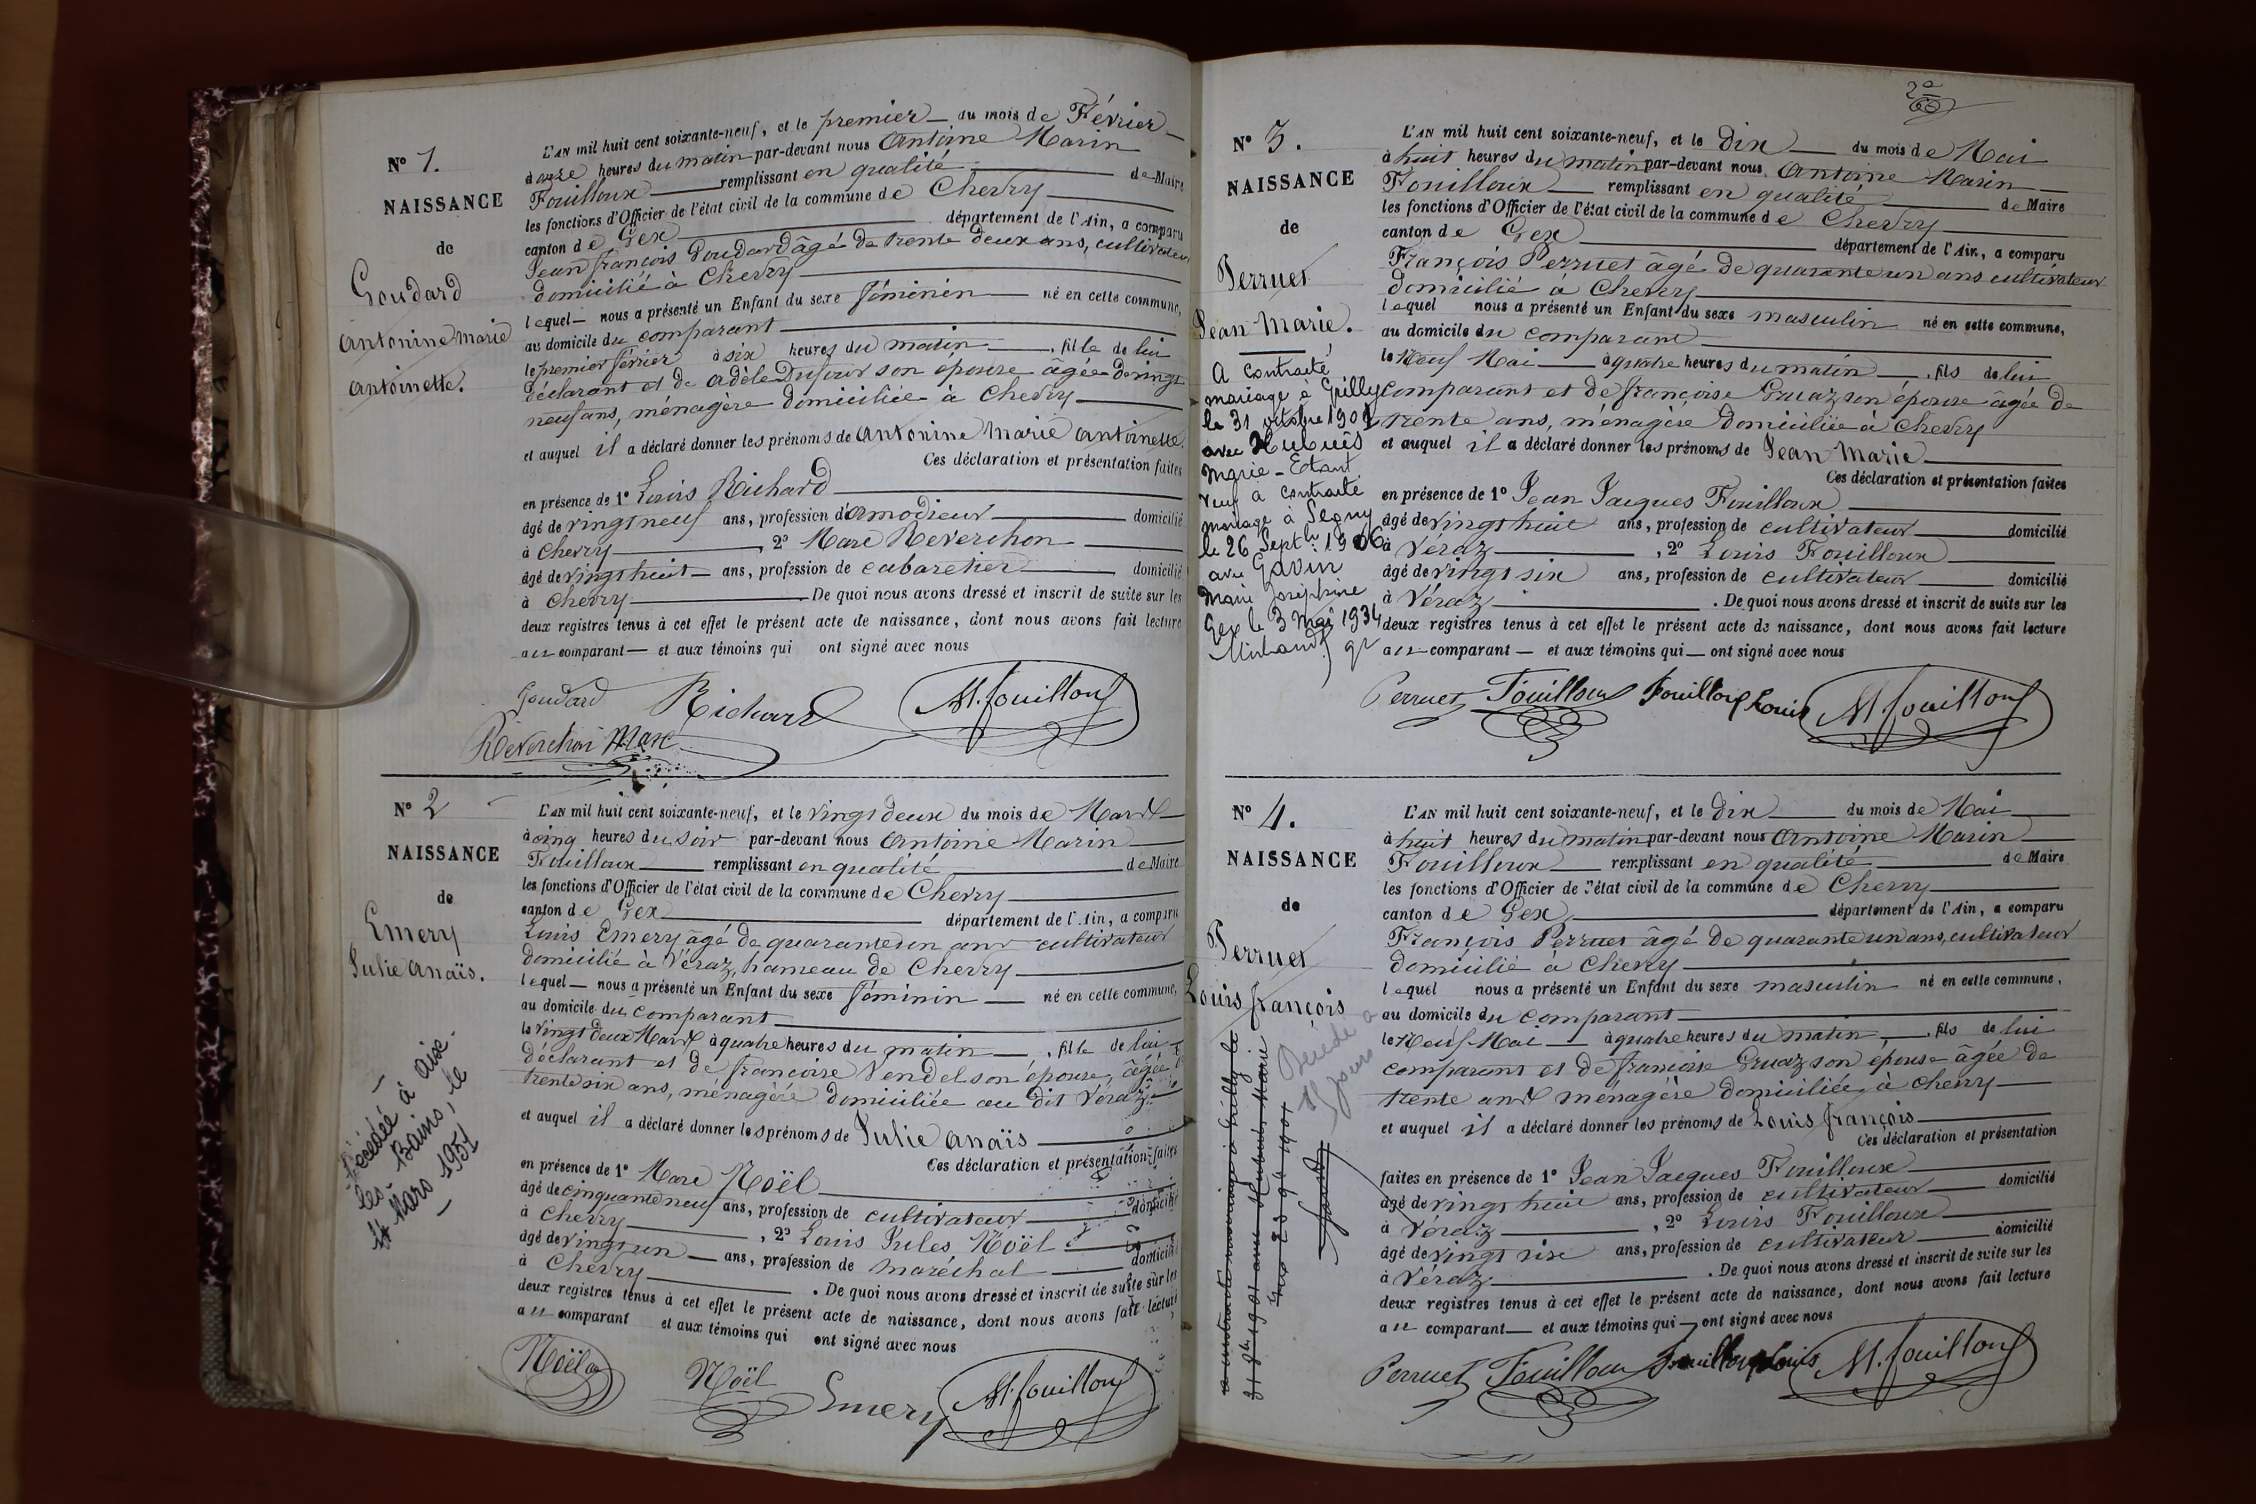 N° 1.
NAISSANCE
de
Goudard
Antonine Marie
Antoinette.
L'AN mil huit cent soixante-neuf, et le premier du mois de Février
à onze heures du matin par-devant nous Antoine Marin
Fouilloux remplissant en qualité de Maire
les fonctions d'Officier de l'état civil de la commune de Chevry
canton de Gex département de l'Ain, a comparu
Jean François Goudard âgé de trente deux ans, cultivateur
domicilié à Chevry
lequel nous a présenté un Enfant du sexe féminin né en cette commune,
au domicile du comparant
le premier février à six heures du matin, fille de lui
déclarant et de Adèle Dufour son épouse âgée de vingt
neuf ans, ménagère domiciliée à Chevry
et auquel il a déclaré donner les prénoms de Antonine Marie Antoinette.
Ces déclaration et présentation faites
en présence de 1° Louis Richard
âgé de vingt neuf ans, profession d'amodieur domicilié
à Chevry, 2° Marc Reverchon
âgé de vingt huit ans, profession de cabaretier domicilié
à Chevry. De quoi nous avons dressé et inscrit de suite sur les
deux registres tenus à cet effet le présent acte de naissance, dont nous avons fait lecture
au comparant et aux témoins qui ont signé avec nous
Goudard Richard M. fouilloux
Reverchon Marc
N° 2
NAISSANCE
de
Emery
Julie Anaïs.
Décédée à Aix-
les-Bains, le
Mars 1951
L'AN mil huit cent soixante-neuf, et le vingt deux du mois de Mars
à cinq heures du soir par-devant nous Antoine Marin
Fouilloux remplissant en qualité de Maire
les fonctions d'Officier de l'état civil de la commune de Chevry
canton de Gex département de l'Ain, a comparu
Louis Emery âgé de quarante un ans cultivateur
domicilié à Véraz, hameau de Chevry
lequel nous a présenté un Enfant du sexe féminin né en cette commune,
au domicile du comparant
le vingt deux Mars à quatre heures du matin, fille de lui
déclarant et de françoise Vendel son épouse, âgée
trente six ans, ménagère domiciliée au dit Véraz
et auquel il a déclaré donner les prénoms de Julie Anaïs
Ces déclaration et présentation faites
en présence de 1° Marc Noël
âgé de cinquante neuf ans, profession de cultivateur domicilié
à Chevry, 2° Louis Jules Noël
âgé de vingt un ans, profession de maréchal domicilié
à Chevry. De quoi nous avons dressé et inscrit de suite sur les
deux registres tenus à cet effet le présent acte de naissance, dont nous avons fait lecture
au comparant et aux témoins qui ont signé avec nous
Noël Noël Emery M. fouilloux
N° 3.
NAISSANCE
de
Perruet
Jean Marie.
A contracté
mariage à Grilly
le 31 octobre 1901
avec Hubués
Marie - Etant
veuf a contracté
mariage à Segny
le 26 Septbre 1906
avec Gavin
Marie Joséphine
Gex le 3 Mai 1934
L'AN mil huit cent soixante-neuf, et le dix du mois de Mai
à huit heures du matin par-devant nous Antoine Marin
Fouilloux remplissant en qualité de Maire
les fonctions d'Officier de l'état civil de la commune de Chevry
canton de Gex département de l'Ain, a comparu
François Perruet âgé de quarante un ans cultivateur
domicilié à Chevry
lequel nous a présenté un Enfant du sexe masculin né en cette commune,
au domicile du comparant
le Neuf Mai à quatre heures du matin, fils de lui
comparant et de françoise Gruaz son épouse âgée de
trente ans, ménagère domiciliée à Chevry
et auquel il a déclaré donner les prénoms de Jean Marie
Ces déclaration et présentation faites
en présence de 1° Jean Jacques Fouilloux
âgé de vingt huit ans, profession de cultivateur domicilié
à Véraz, 2° Louis Fouilloux
âgé de vingt six ans, profession de cultivateur domicilié
à Véraz. De quoi nous avons dressé et inscrit de suite sur les
deux registres tenus à cet effet le présent acte de naissance, dont nous avons fait lecture
au comparant et aux témoins qui ont signé avec nous
Perruet Fouilloux Fouilloux Louis M. fouilloux
N° 4.
NAISSANCE
de
Perruet
Louis françois
Décédé à
15 jours
a contracté mariage à Grilly le
31 8bre 1901 avec Hubués, Marie
Gex 23 9b 1901
L'AN mil huit cent soixante-neuf, et le dix du mois de Mai
à huit heures du matin par-devant nous Antoine Marin
Fouilloux remplissant en qualité de Maire
les fonctions d'Officier de l'état civil de la commune de Chevry
canton de Gex département de l'Ain, a comparu
François Perruet âgé de quarante un ans, cultivateur
domicilié à Chevry
lequel nous a présenté un Enfant du sexe masculin né en cette commune,
au domicile du comparant
le Neuf Mai à quatre heures du matin, fils de lui
comparant et de françoise Gruaz son épouse âgée de
trente ans ménagère domiciliée à Chevry
et auquel il a déclaré donner les prénoms de Louis françois
Ces déclaration et présentation
faites en présence de 1° Jean Jacques Fouilloux
âgé de vingt huit ans, profession de cultivateur domicilié
à Véraz, 2° Louis Fouilloux
âgé de vingt six ans, profession de cultivateur domicilié
à Véraz. De quoi nous avons dressé et inscrit de suite sur les
deux registres tenus à cet effet le présent acte de naissance, dont nous avons fait lecture
au comparant et aux témoins qui ont signé avec nous
Perruet Fouilloux Fouilloux Louis M. fouilloux